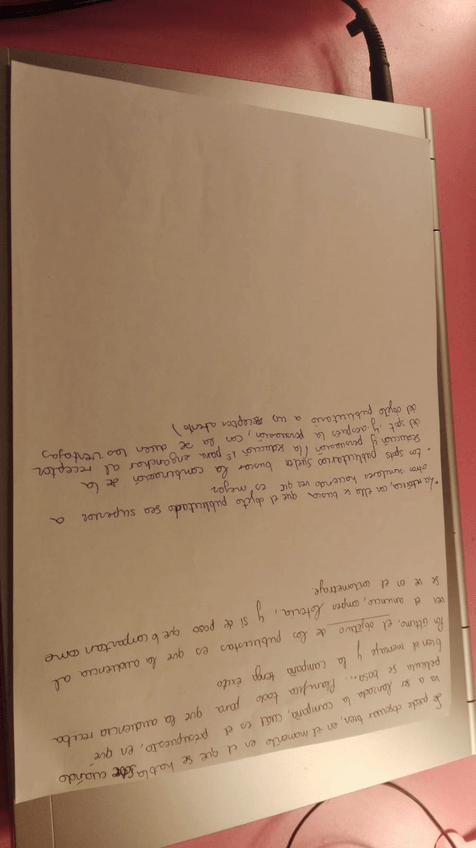 Se puede observar bien, en el momento en el que se habla sobre cuándo
va a ser lanzada la campaña, cuál es el presupuesto, en qué
película se basa... Planifica todo para que la audiencia reciba
bien el mensaje y la campaña tenga éxito
Por último, el objetivo de los publicistas es que la audiencia al
ver el anuncio, compren lotería, y si de paso que lo compartan como
se ve en el cortometraje
· La retórica, en ella se busca que el objeto publicitado sea superior a
otro similares haciendo ver que es mejor.
· Los spots publicitarios suelen buscar la combinación de la
seducción y persuasión (la seducción es para enganchar al receptor
del spot y después la persuasión, con la se dicen las ventajas
del objeto publicitario a un receptor atento)